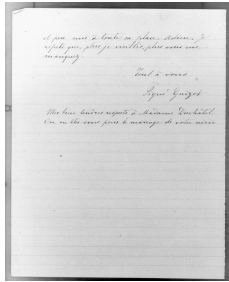 et peu mis à toute sa place. Adieu. Je
répète que, plus je vieillis, plus vous me
manquez.
Tout à vous
Signé Guizot
Mes bien tendres respects à Madame Duchâtel.
en êtes vous pour le mariage de votre nièce